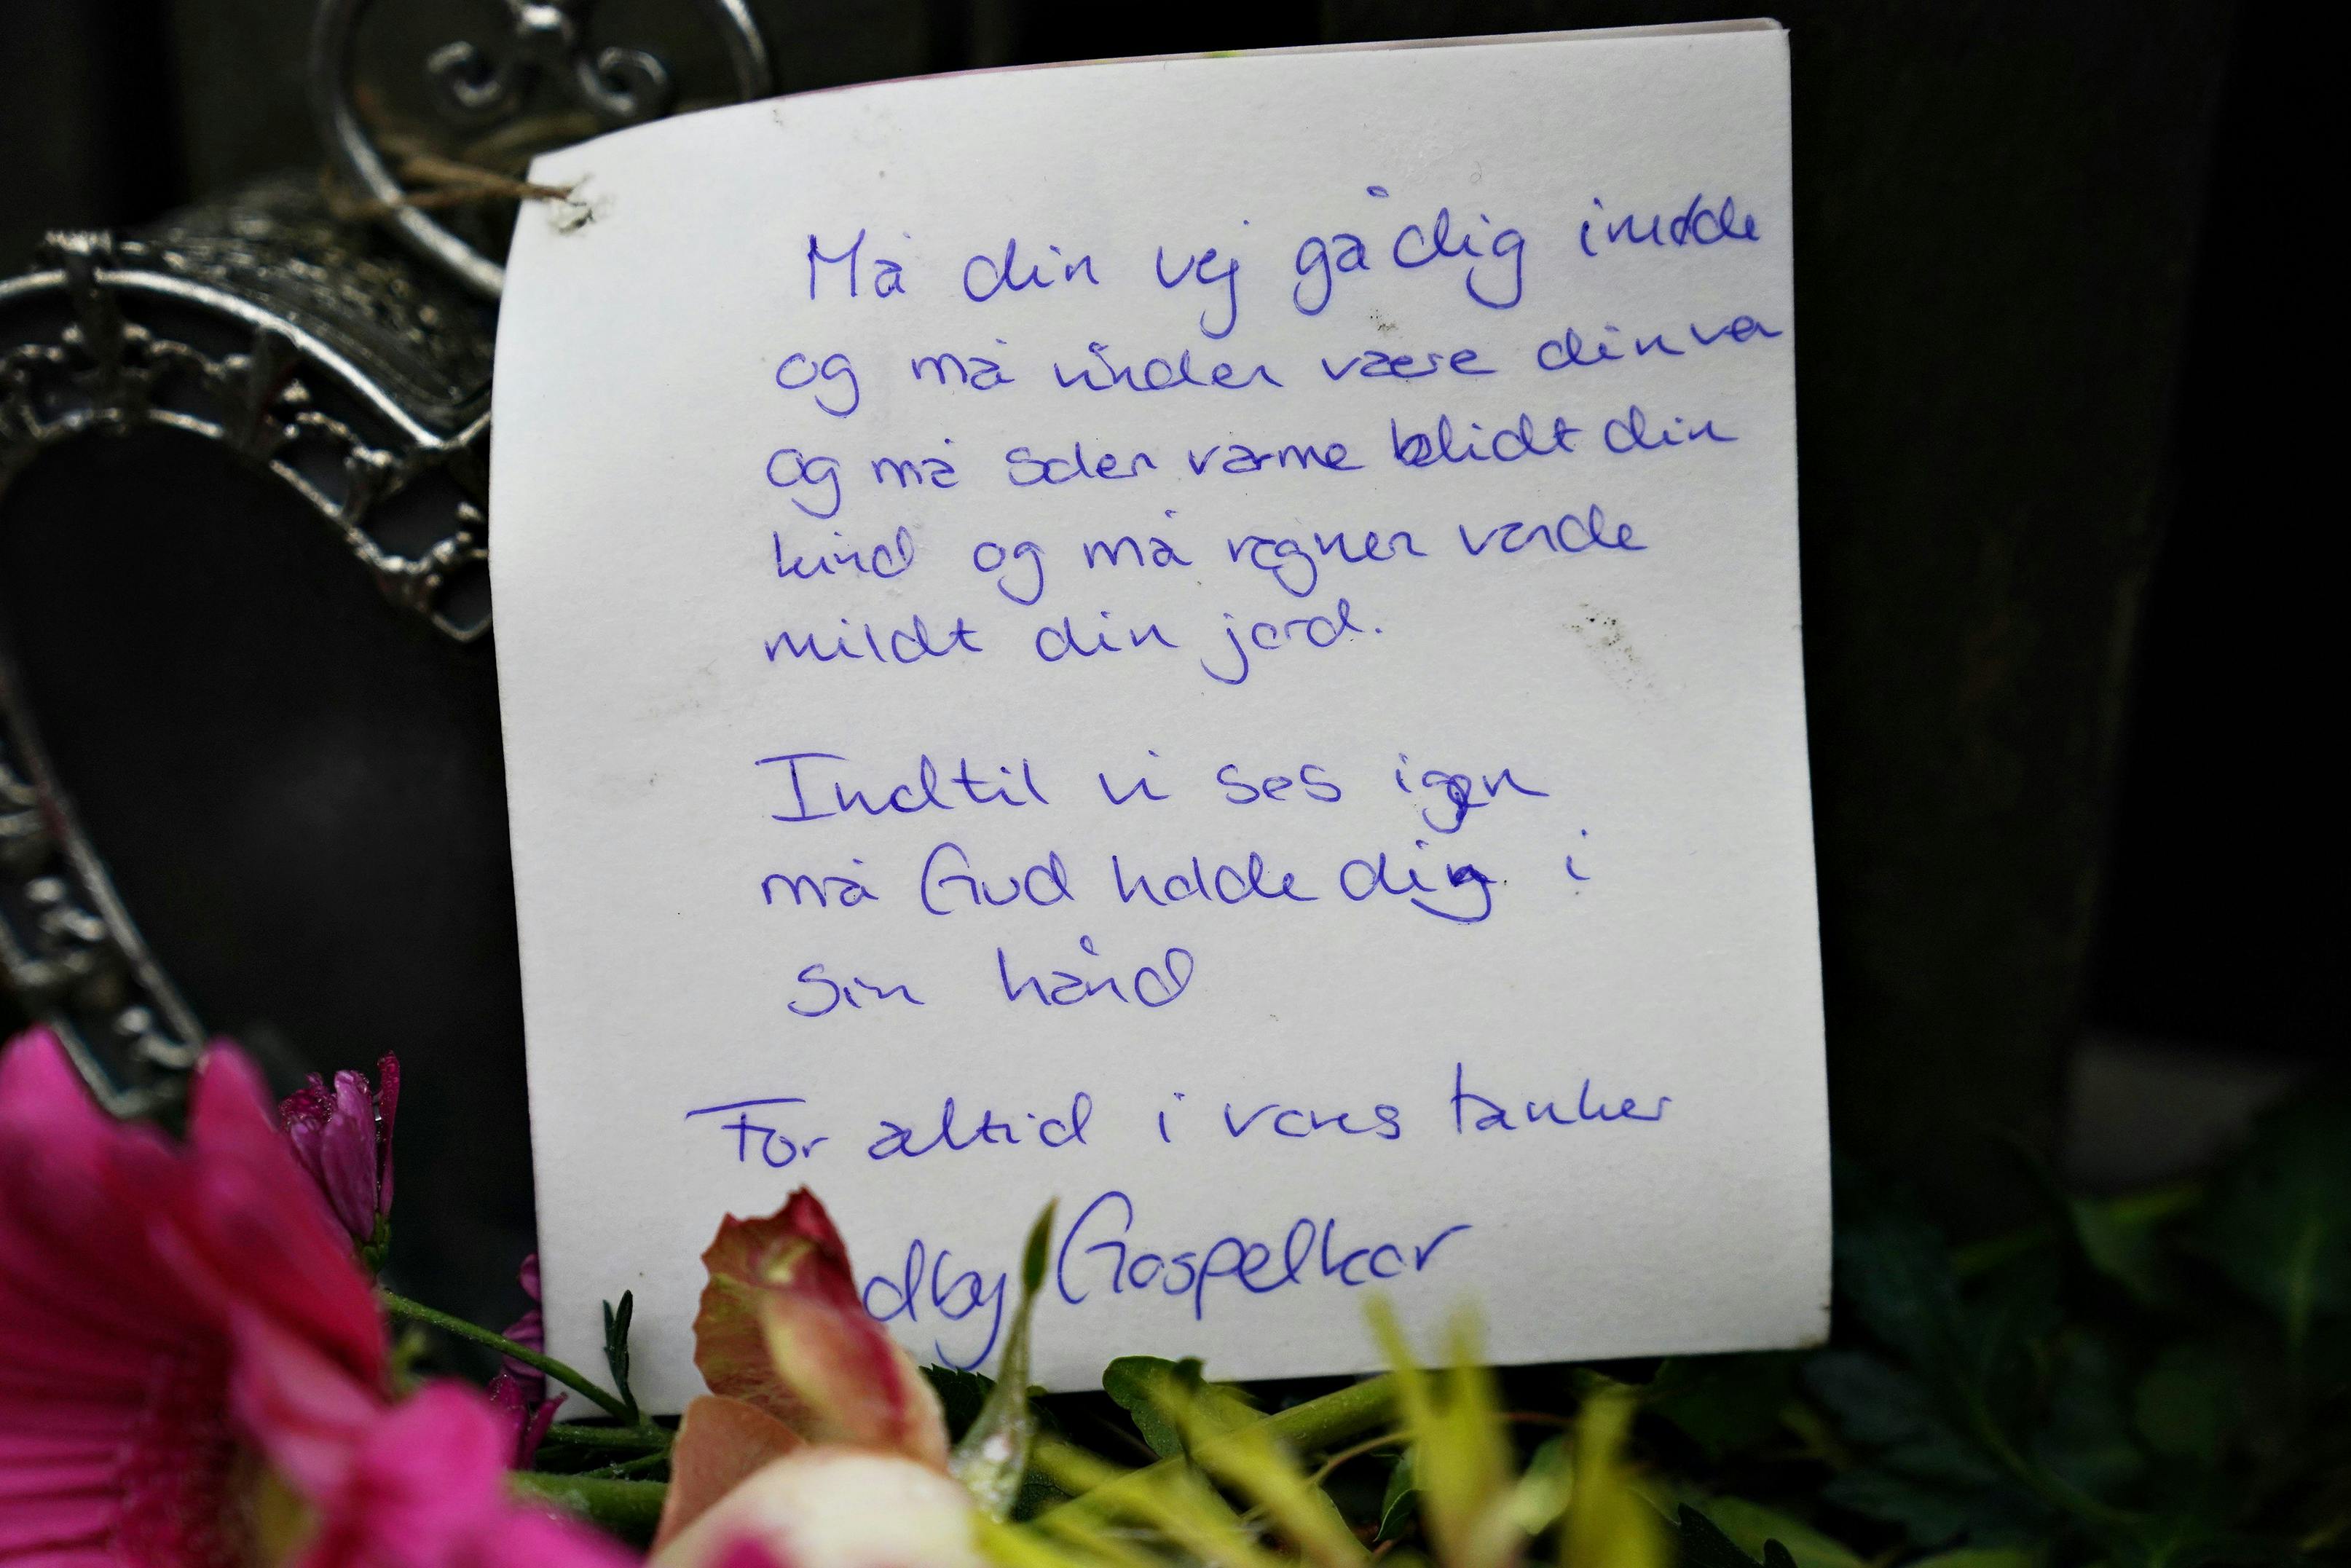 Må din vej gå dig imøde
og må vinden være din ven
og må solen varme blidt din
kind og må regnen vande
mildt din jord.
Indtil vi ses igen
må Gud holde dig i
sin hånd
For altid i vores tanker
Gospelkor